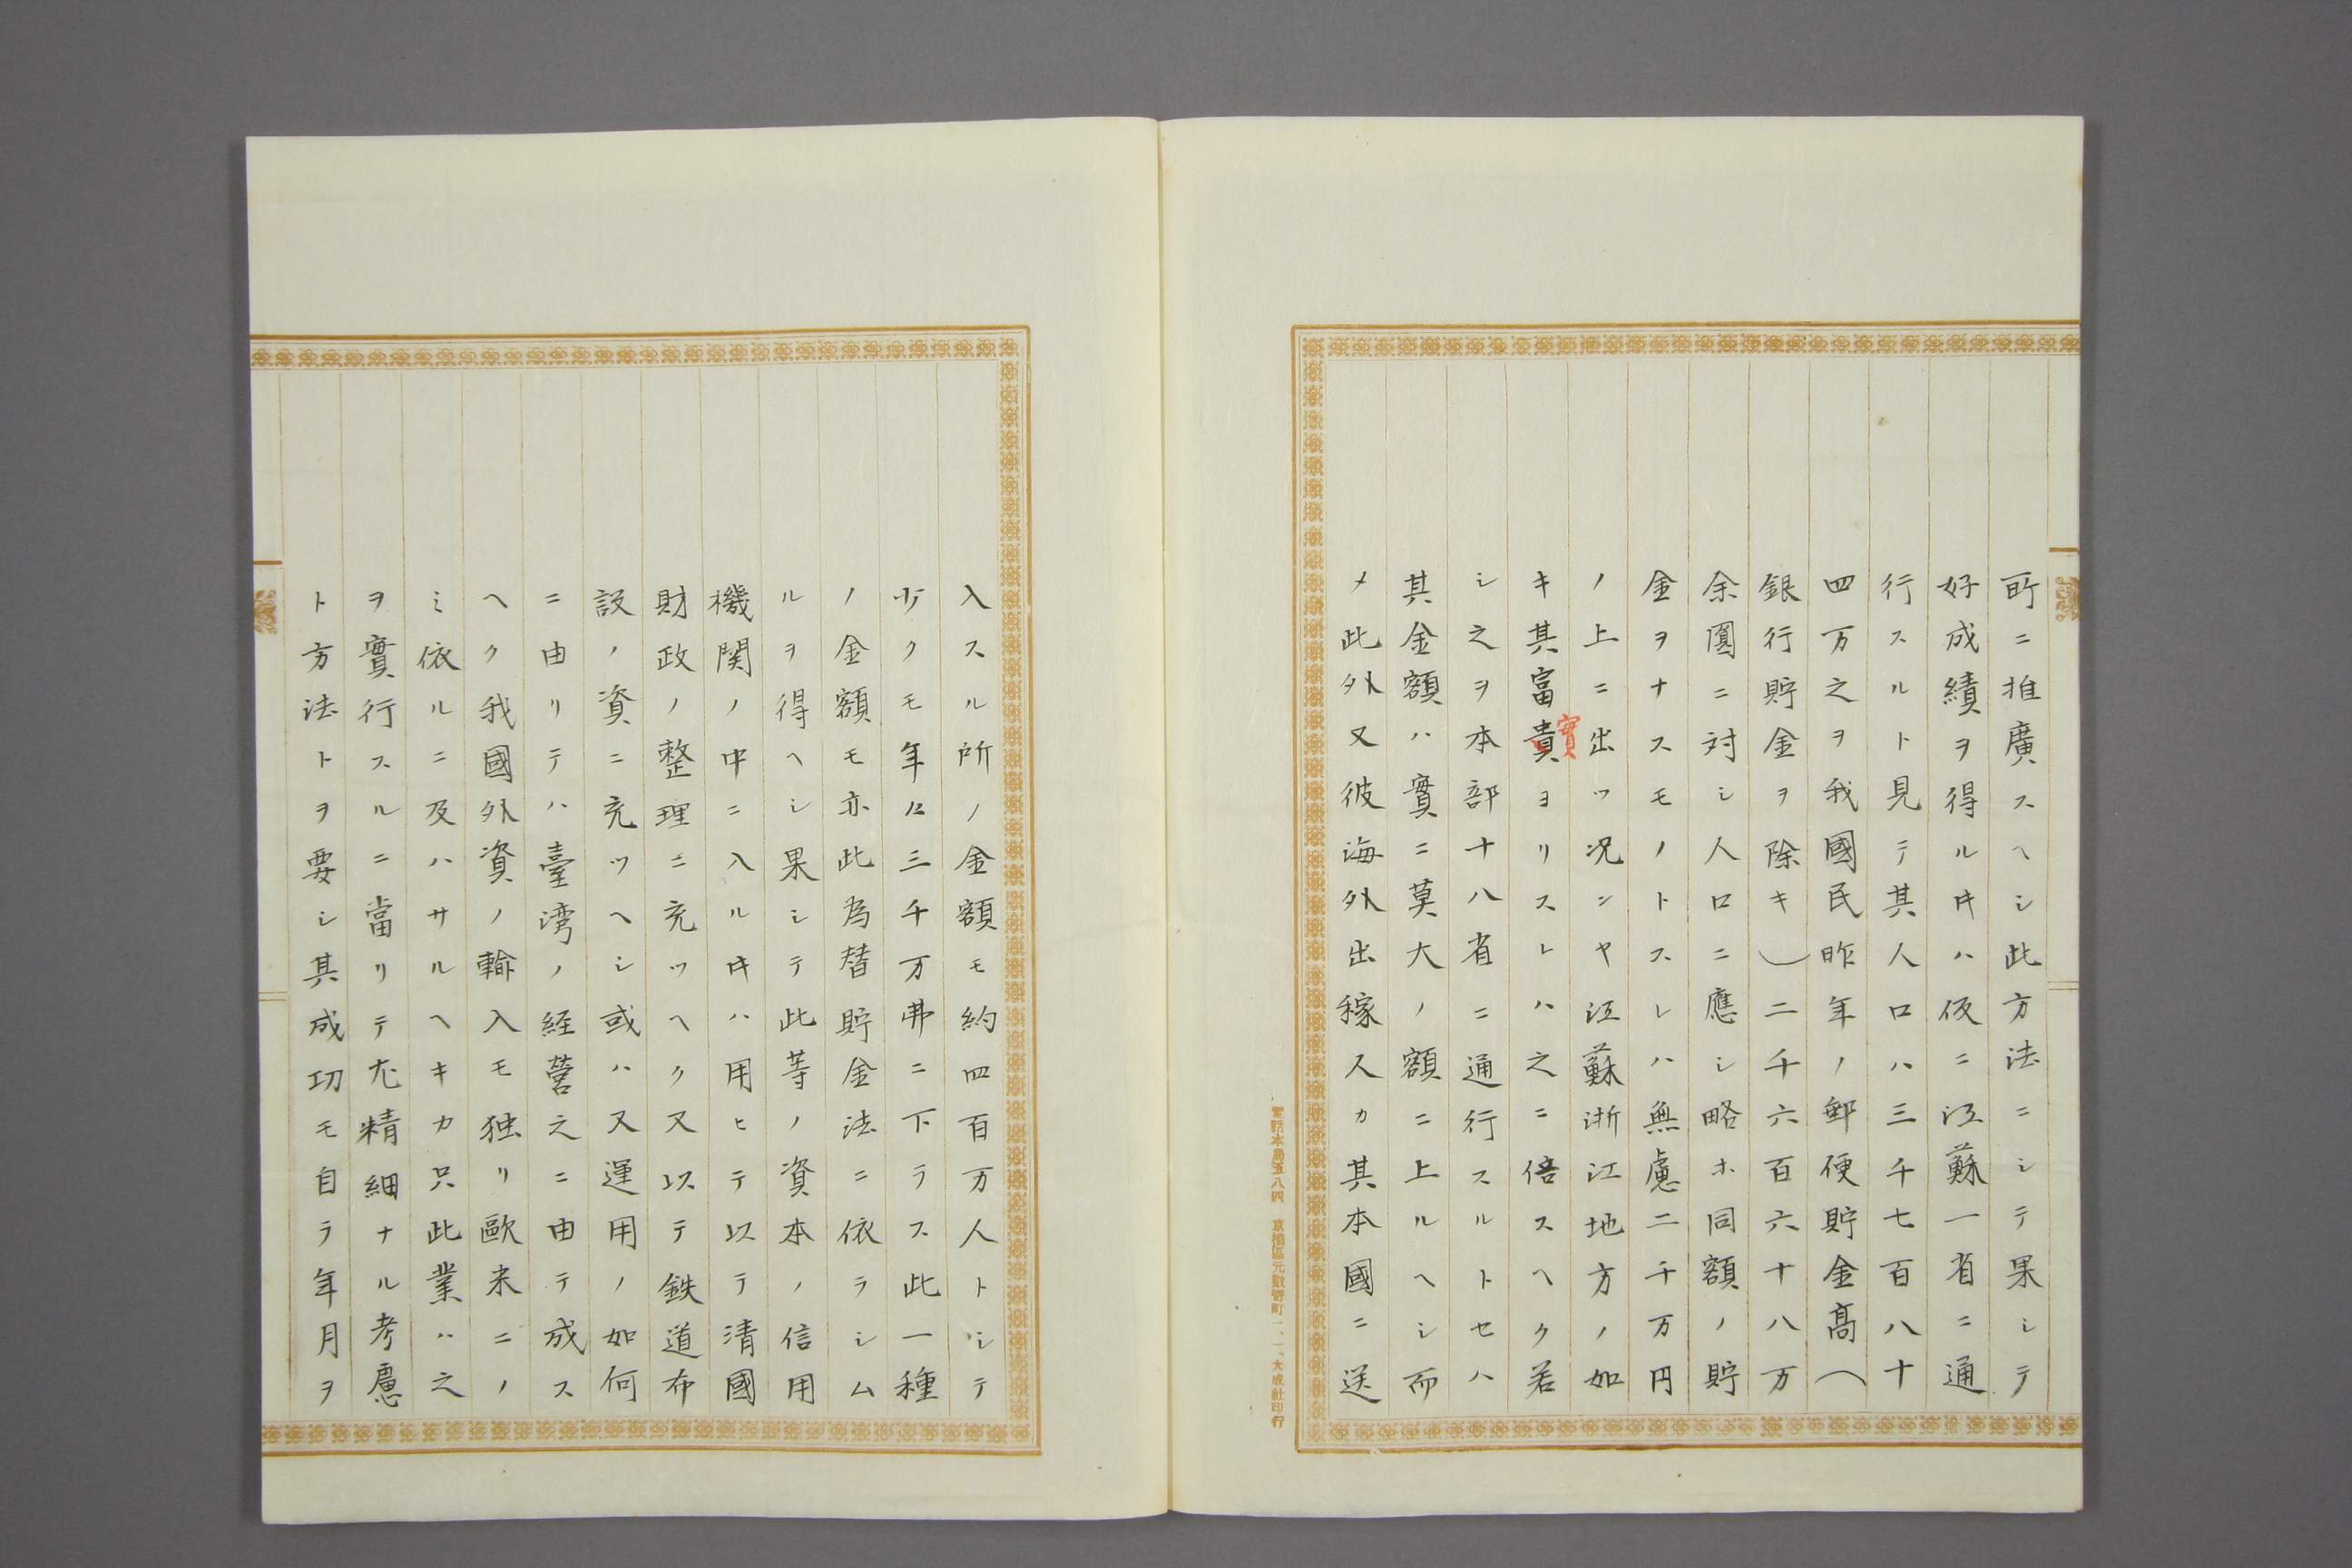 所ニ推廣スヘシ此方法ニシテ果シテ
好成績ヲ得ルキハ仮ニ江蘇一省ニ通
行スルト見テ其人口ハ三千七百八十
四万之ヲ我國民昨年ノ郵便貯金高(
銀行貯金ヲ除キ)二千六百六十八万
余圓ニ対シ人口ニ應シ略ホ同額ノ貯
金ヲナスモノトスレハ無慮二千万円
ノ上ニ出ツ况ンヤ江蘇浙江地方ノ如
キ其富貴ヨリスレハ之ニ倍スヘク若
實
シ之ヲ本部十八省ニ通行スルトセハ
其金額ハ實ニ莫大ノ額ニ上ルヘシ而
メ此外又彼海外出稼人カ其本國ニ送
入スル所ノ金額モ約四百万人トシテ
少クモ年ニ三千万弗ニ下ラス此一種
ノ金額モ亦此為替貯金法ニ依ラシム
ルヲ得ヘシ果シテ此等ノ資本ノ信用
機関ノ中ニ入ルキハ用ヒテ以テ清國
財政ノ整理ニ充ツヘク又以テ鉄道布
設ノ資ニ充ツヘシ或ハ又運用ノ如何
ニ由リテハ臺湾ノ経営之ニ由テ成ス
ヘク我國外資ノ輸入モ独リ歐米ニノ
ミ依ルニ及ハサルヘキカ只此業ハ之
ヲ實行スルニ當リテ尤精細ナル考慮
ト方法トヲ要シ其成功モ自ラ年月ヲ